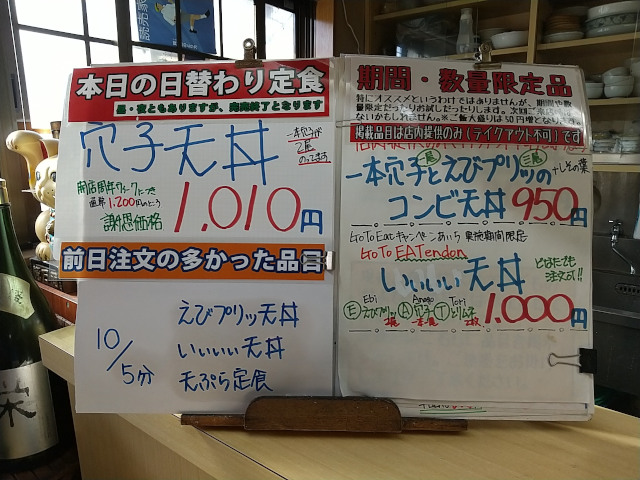 本日の日替わり定食
昼・夜ともありますが、完売終了となります
穴子天丼
一本穴子が
2尾
のってます
開店周年ウィークにつき
通常1,200円のところ
謝恩価格
1,010円
前日注文の多かった品目
10/5分
えびプリッ天丼
いいいい天丼
天ぷら定食
期間・数量限定品
特にオススメというわけではありませんが、期間や数
量限定だったりお試しだったりします。次回ご来店時には
ないかもしれません。※ご飯大盛りは50円増となり
掲載品目は店内提供のみ(テイクアウト不可)です
一尾
三尾
一本穴子とえびプリッの
+しその葉
コンビ天丼 950円
GoToEatキャンペーンあいち 実施期間限定
GoTo EATendon
いいいい天丼
ともにでも
注文可!!
Ebi Anago Tori
Ⓔえびプリッ Ⓐ穴子 Ⓣとりムネ
2尾 一本1尾 2枚
1,000円
栄